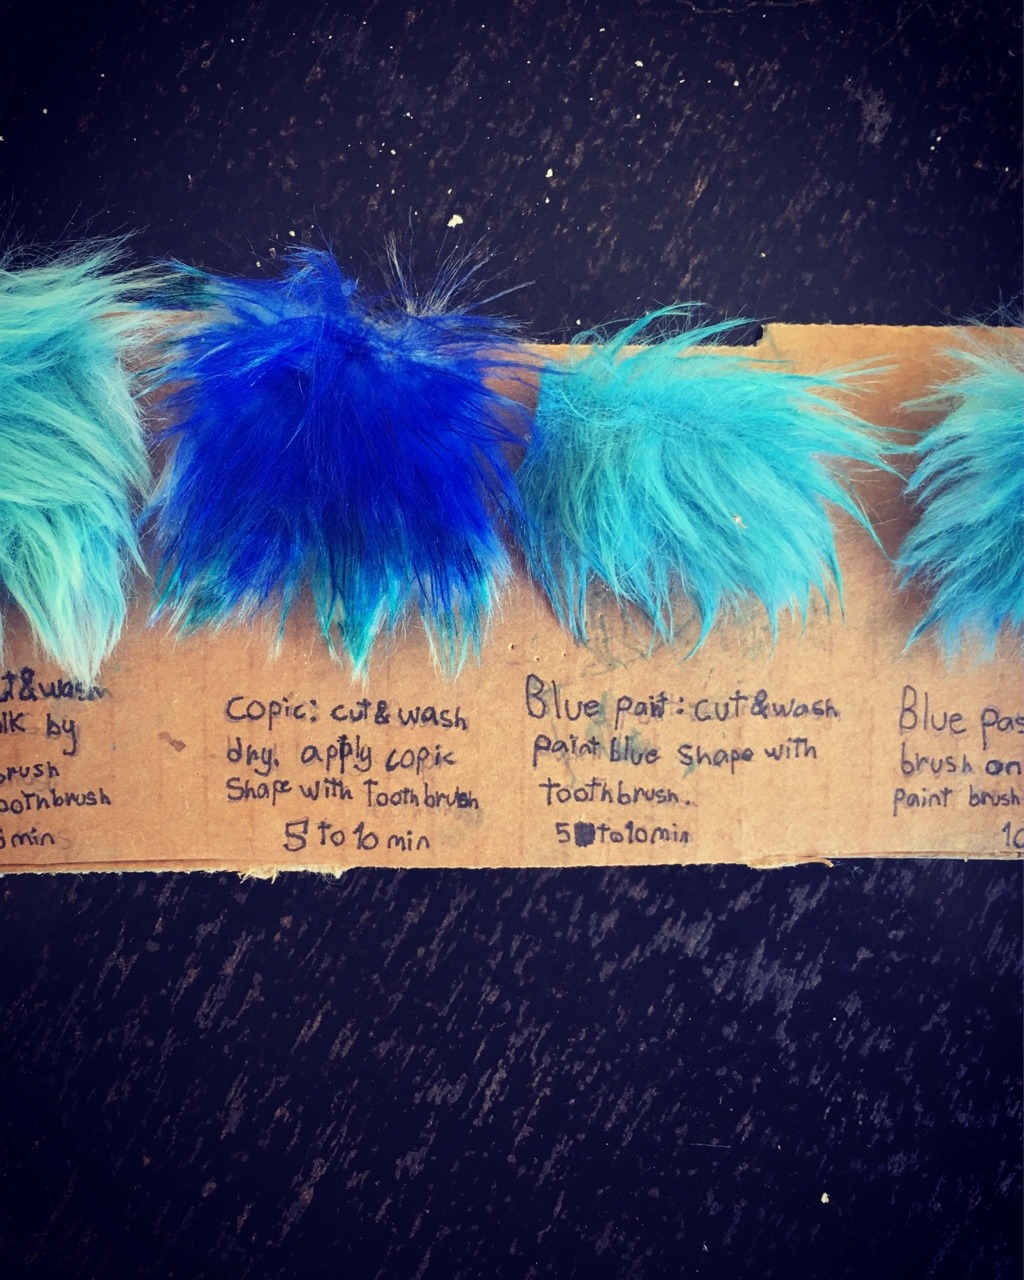 cut&wash
by
brush
toothbrush
min
Copic: cut & wash
dry, apply copic
Shape with Toothbrush
5 to 10 min
Blue paint: cut&wash
paint blue shape with
toothbrush.
5 to 10 min
Blue
brush on
paint brush